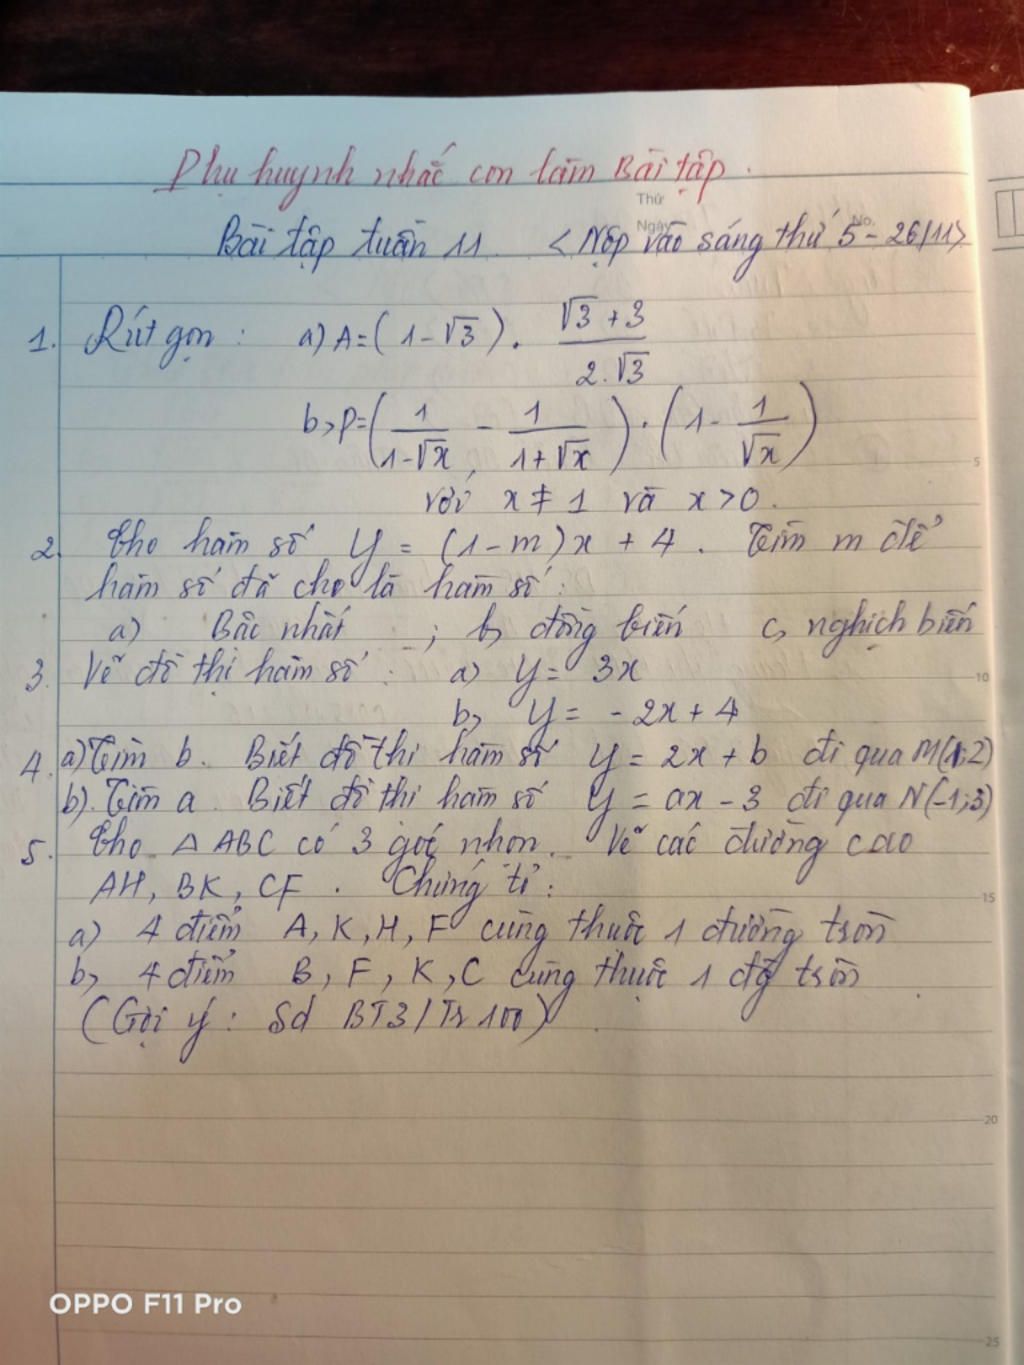 Phụ huynh nhắc con làm Bài tập.
Thứ
Ngày
No.
Bài tập tuần 11. < Nộp vào sáng thứ 5 - 26/11>
1. Rút gọn : a) A = ( 1 - √3 ) . (√3 + 3)/(2.√3)
b, P = ( 1/(1-√x) - 1/(1+√x) ) . ( 1 - 1/√x )
với x ≠ 1 và x > 0.
2. Cho hàm số y = (1-m)x + 4 . Tìm m để
hàm số đã cho là hàm số :
a) Bậc nhất ; b, đồng biến c, nghịch biến
3. Vẽ đồ thị hàm số : a) y = 3x
b, y = -2x + 4
4. a) Tìm b. Biết đồ thi hàm số y = 2x + b đi qua M(1;2)
b). Tìm a. Biết đồ thi hàm số y = ax - 3 đi qua N(-1;3)
5. Cho Δ ABC có 3 góc nhọn. Vẽ các đường cao
AH, BK, CF . Chứng tỏ :
a) 4 điểm A, K, H, F cùng thuộc 1 đường tròn
b, 4 điểm B, F, K, C cùng thuộc 1 đg tròn
(Gợi ý : Sd BT3/Tr 100)
5
10
15
20
25
OPPO F11 Pro